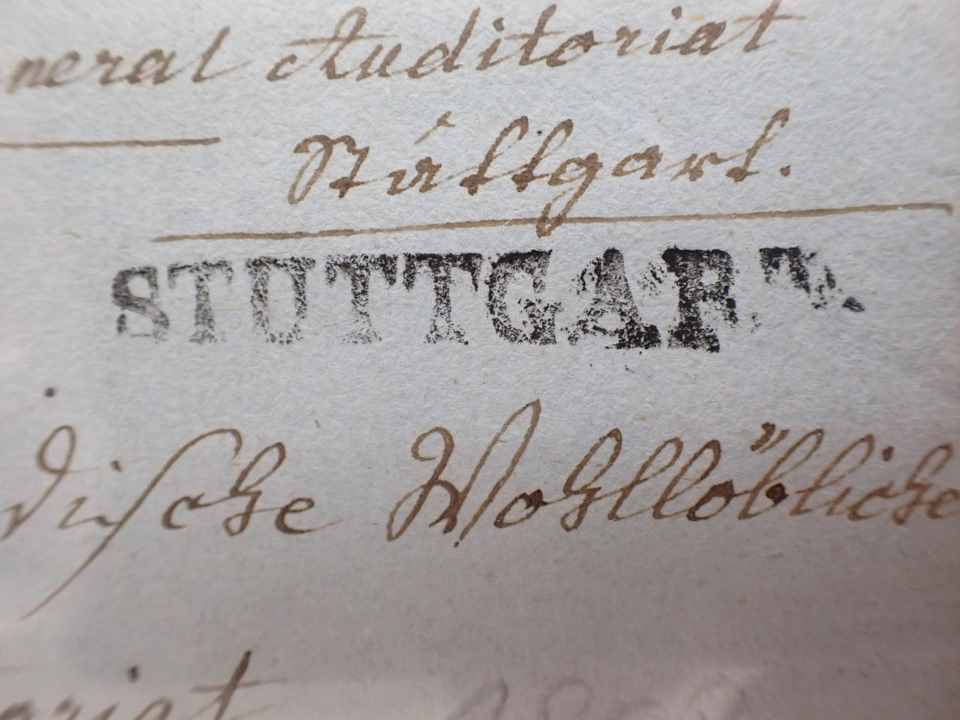 neral Auditoriat
Stuttgart.
STUTTGART
dische Wohllöbliche
oriat